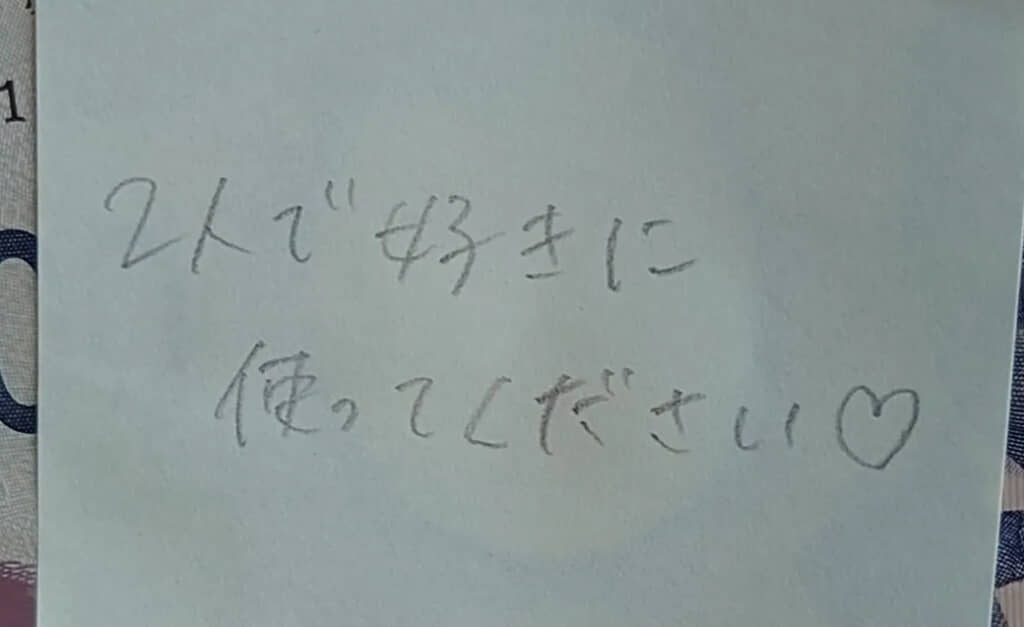 1
2人で好きに
使ってください♡